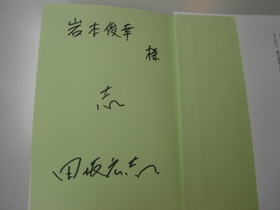 岩本俊幸
様
志
田坂広志